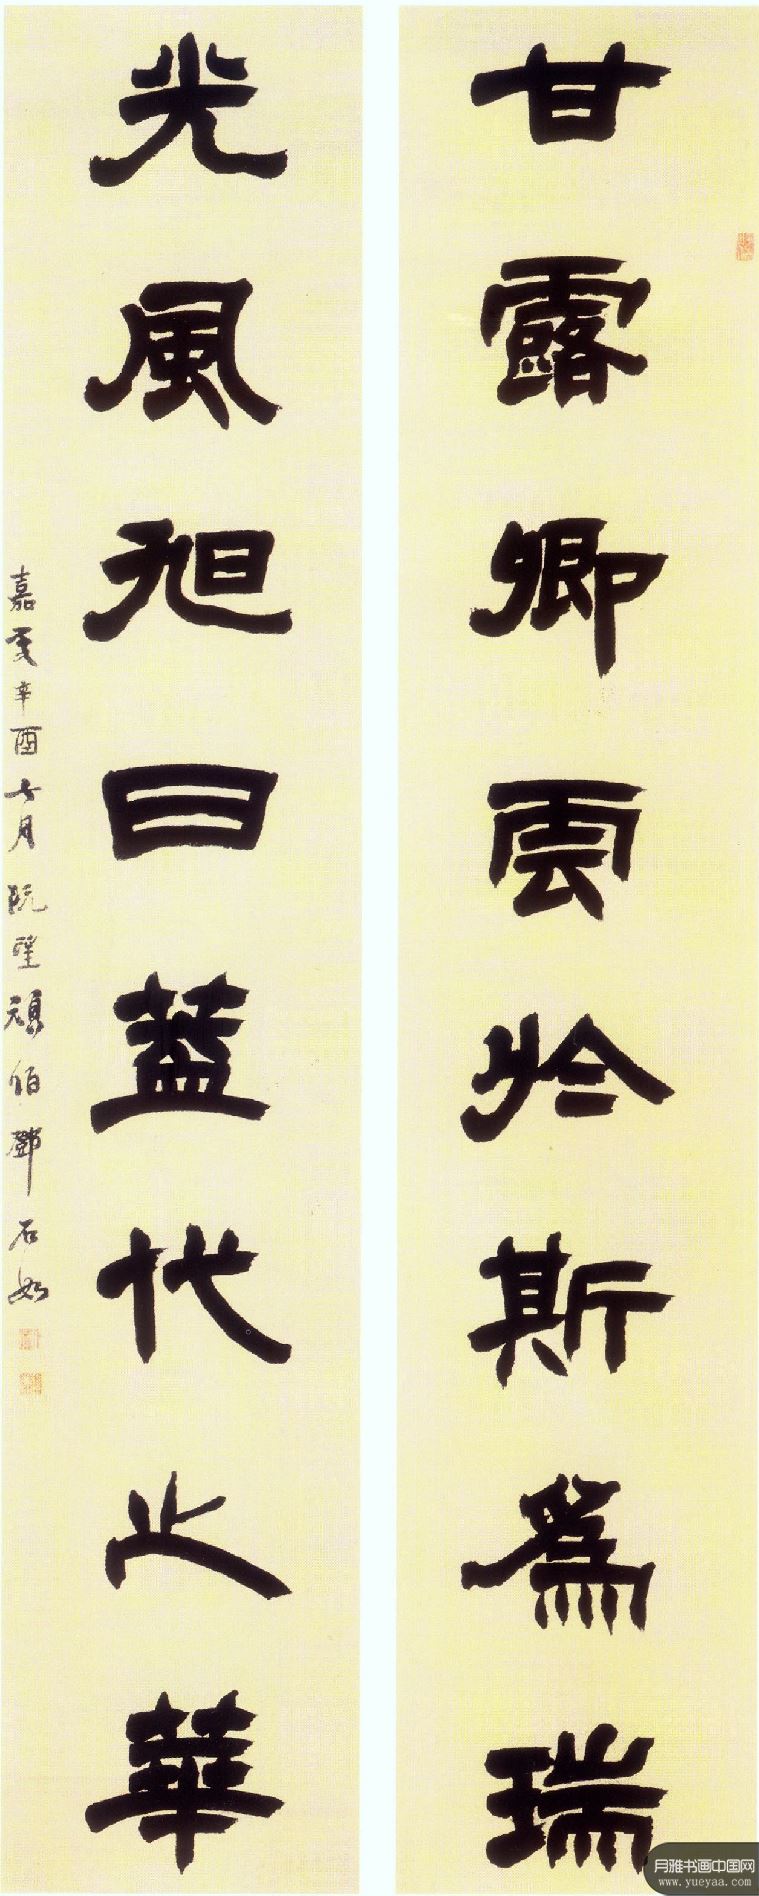 甘露卿雲於斯爲瑞
光風旭日蓋代之華
嘉慶辛酉七月既望頑伯鄧石如
月雅书画中国网
www.yueyaa.com